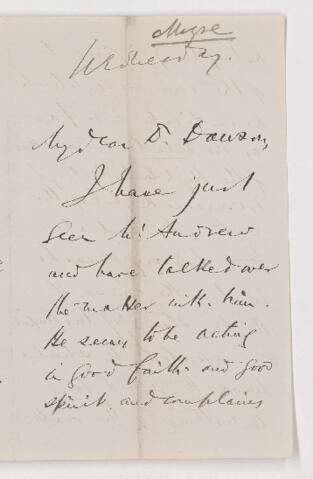 Wednesday.
My dear Dr. Dawson,
I have just
seen Mr Andrew
and have talked over
the matter with him.
He seems to be acting
in good faith and good
spirit and complains